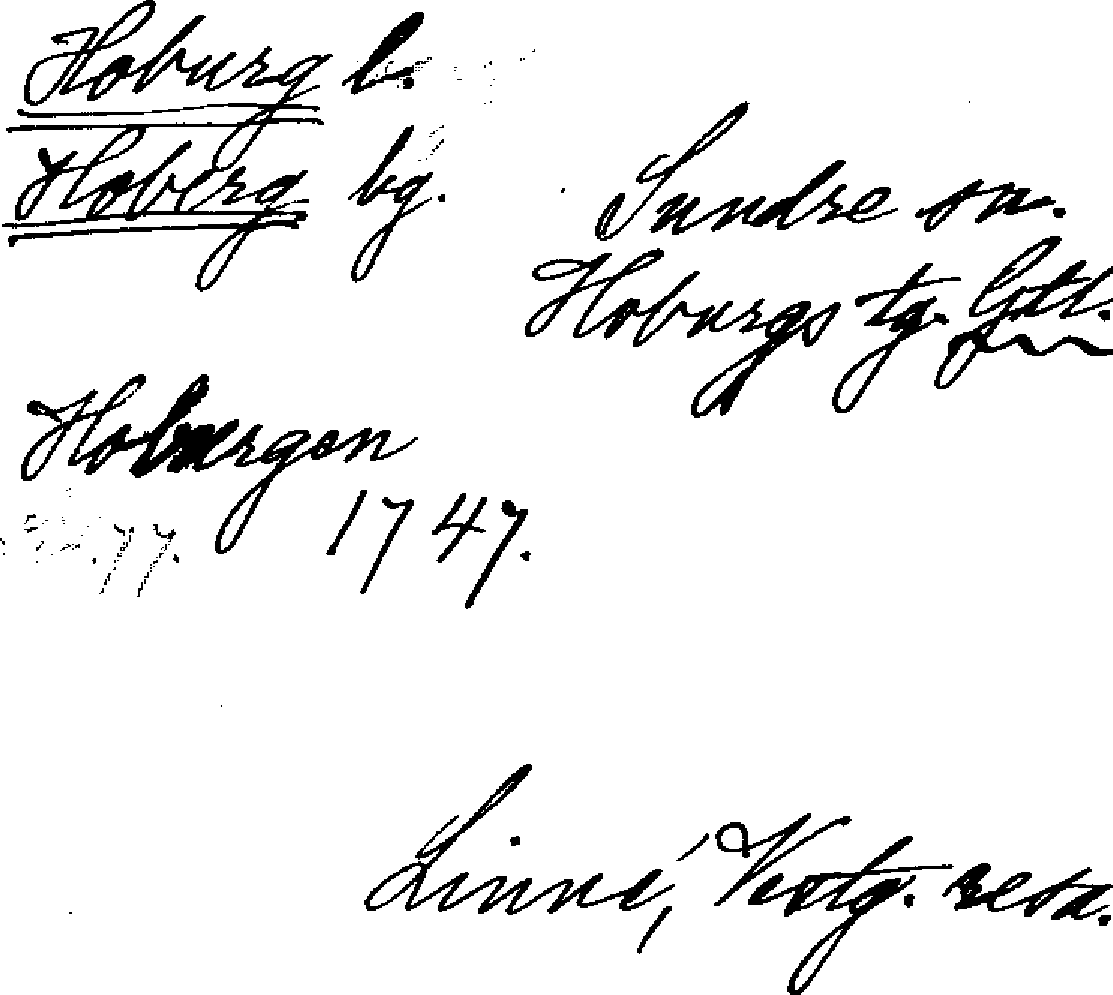 Hoburg l.
Hoberg bg.
Sundre sn.
Hoburgs tg. Gtl.
Hoburgen
1747.
77.
Linné, Vestg. resa.